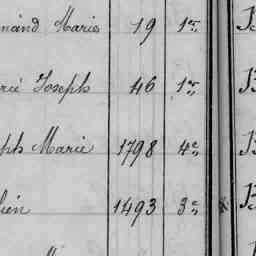 mand Marie 19 1er
rié Joseph 46 1er
eph Marie 1798 4e
lien 1493 3e